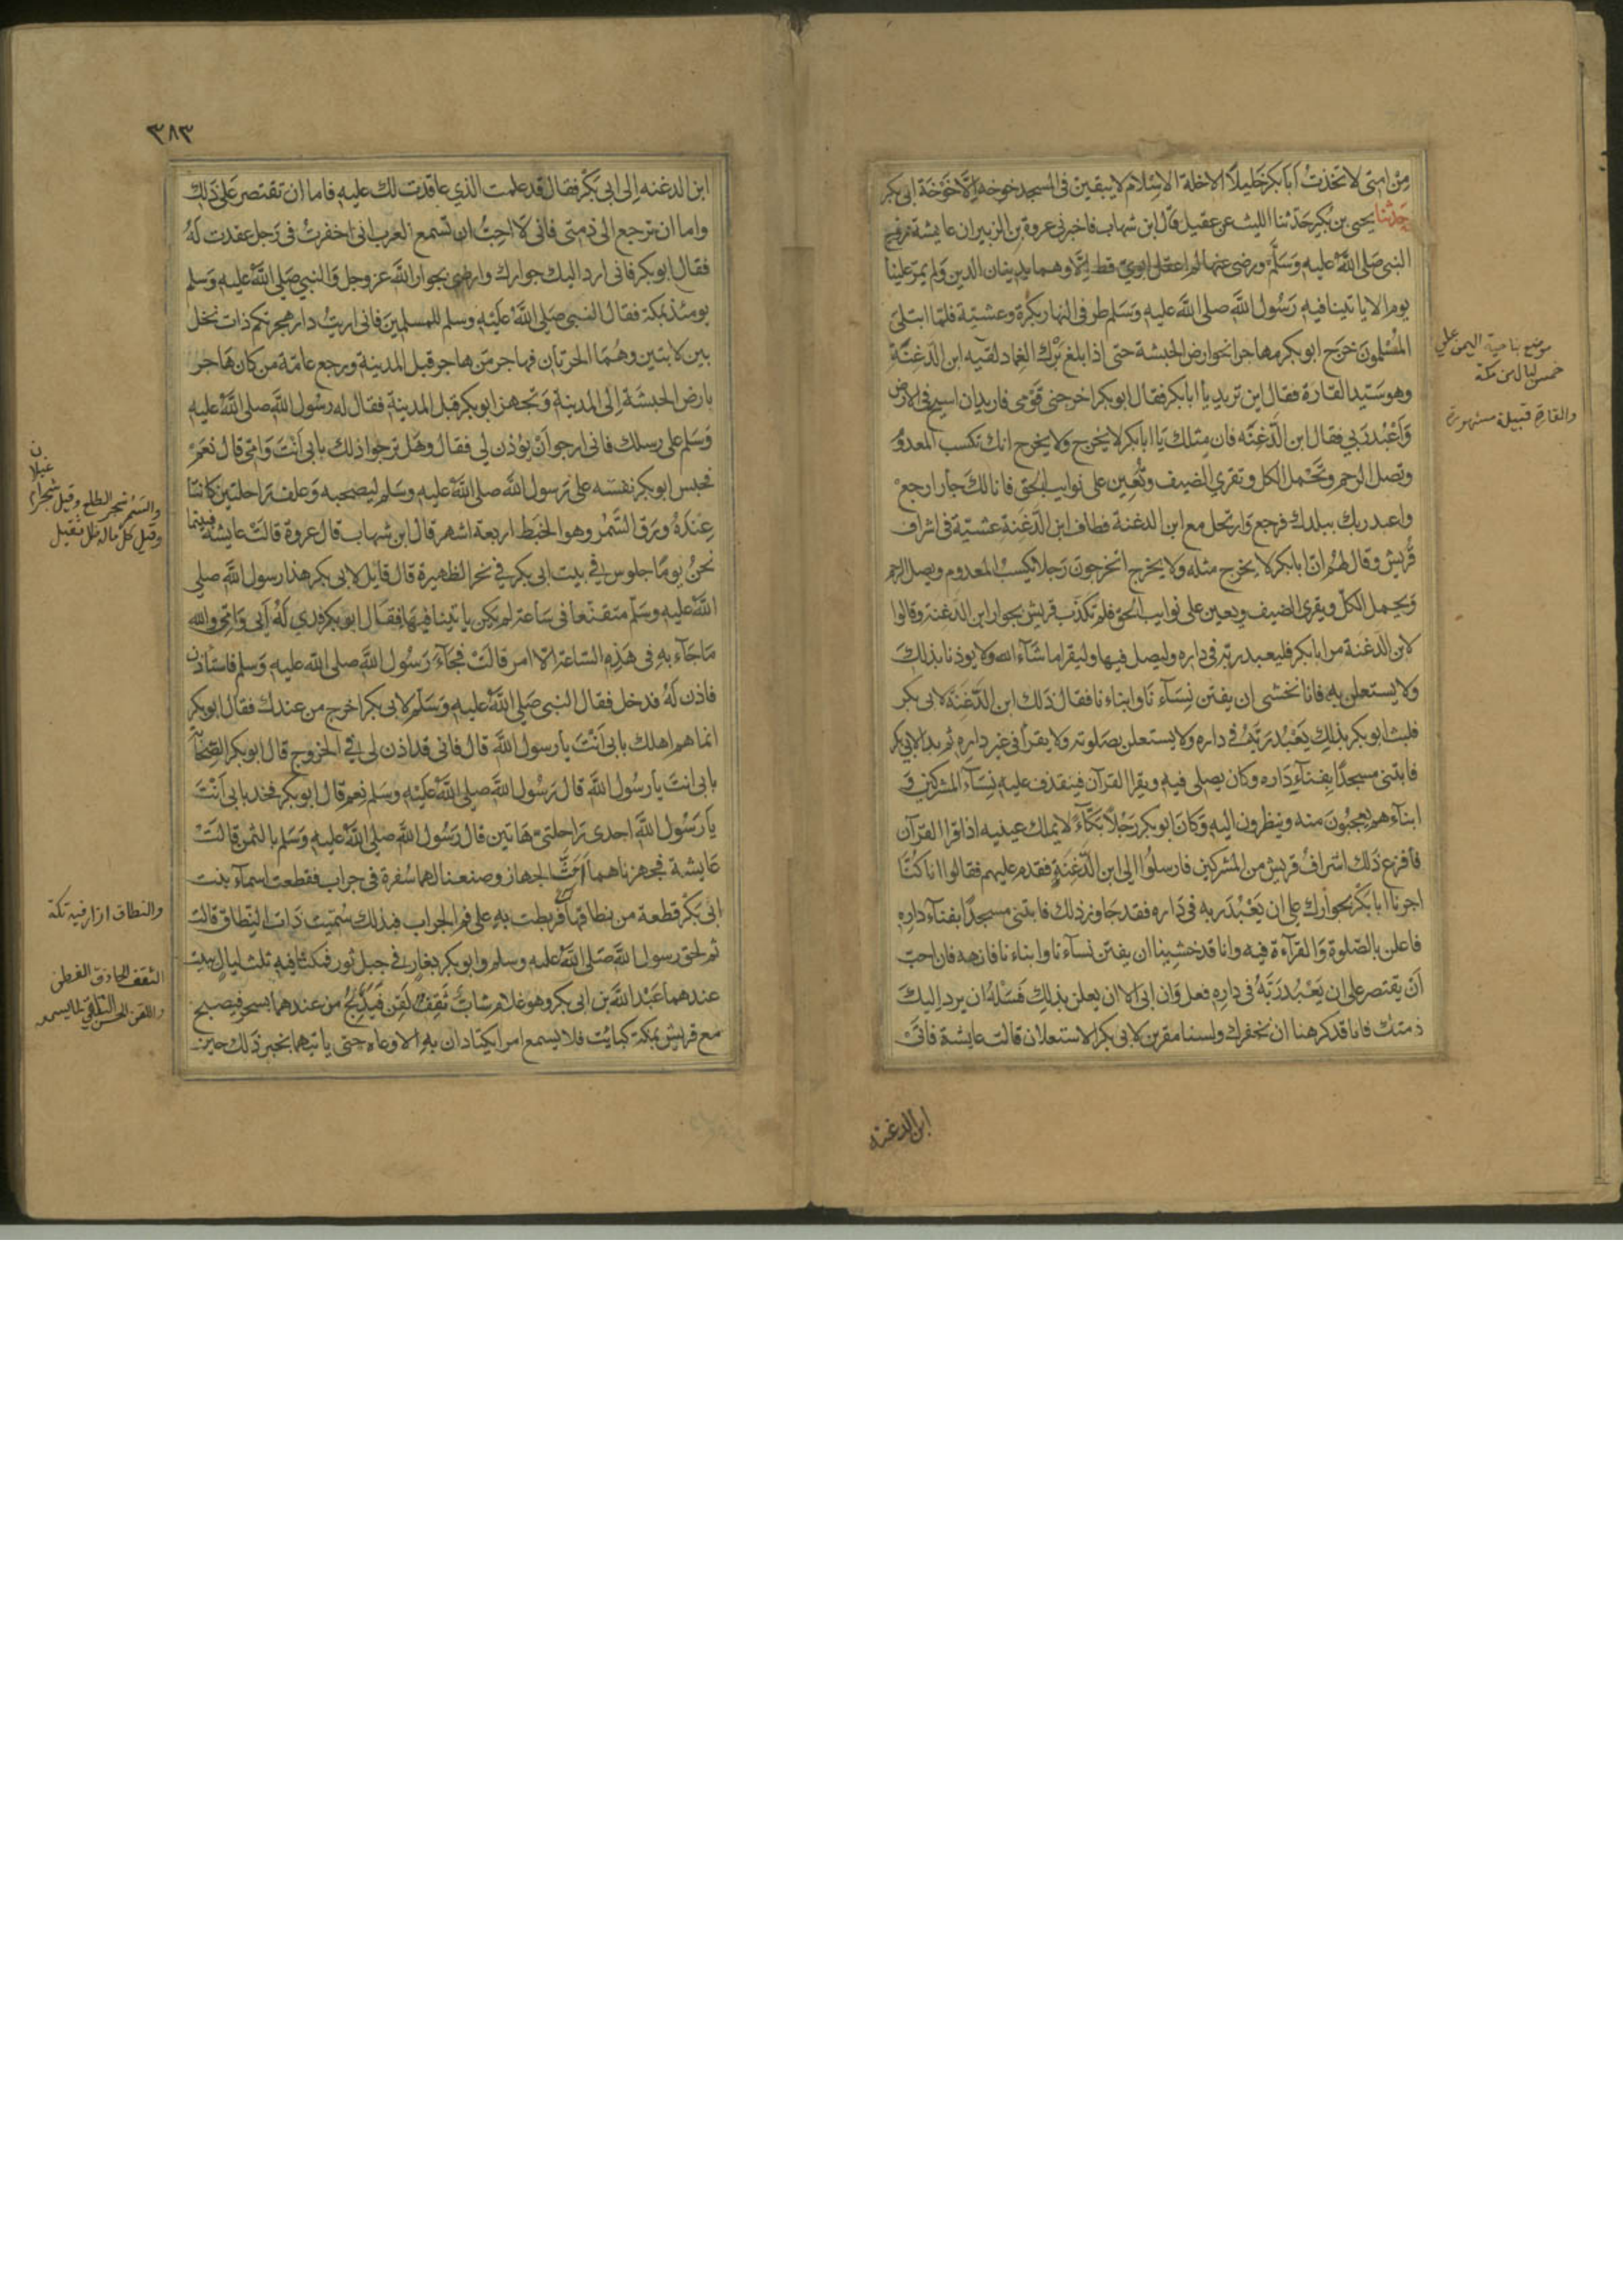 من امتى لاتخذت أبا بكر خليلا الا خلة الاسلام لا يبقين فى المسجد خوخة إلا خوخة ابى بكر
حدثنا يحيى بن بكير حدثنا الليث عن عقيل قال ابن شهاب فاخبرنى عروة بن الزبير ان عايشة زوج
النبى صلى الله عليه وسلم ورضى عنها لم اعقل ابوى قط إلا وهما يدينان الدين ولم يمر علينا
يوم الا ياتينا فيه رسول الله صلى الله عليه وسلم طرفى النهار بكرة وعشية فلما ابتلى
المسلمون خرج ابو بكر مهاجرا نحو ارض الحبشة حتى اذا بلغ برك الغماد لقيه ابن الدغنة
وهو سيد القارة فقال اين تريد يا أبا بكر فقال ابو بكر اخرجنى قومى فاريد ان اسيح فى الارض
وأعبد ربي فقال ابن الدغنه فان مثلك يا ابا بكر لا يخرج ولا يخرج انك تكسب المعدوم
وتصل الرحم وتحمل الكل وتقري الضيف وتعين على نوايب الحق فانا لك جار ارجع
واعبد ربك ببلدك فرجع وارتحل مع ابن الدغنة فطاف ابن الدغنة عشية فى اشراف
قريش وقال لهم ان ابا بكر لا يخرج مثله ولا يخرج اتخرجون رجلا يكسب المعدوم ويصل الرحم
ويحمل الكل ويقرى الضيف ويعين على نوايب الحق فلم تكذب قريش بجوار ابن الدغنة وقالوا
لابن الدغنة مر ابا بكر فليعبد ربه فى داره وليصل فيها وليقرا ما شاء الله ولا يوذنا بذلك
ولا يستعلن به فانا نخشى ان يفتن نساءنا وابناءنا فقال ذلك ابن الدغنة لابى بكر
فلبث ابو بكر بذلك يعبد ربه فى داره ولا يستعلن بصلوته ولا يقرأ فى غير داره ثم بدا لابى بكر
فابتنى مسجدا بفناء داره وكان يصلى فيه ويقرا القرآن فينقذف عليه نساء المشركين و
ابناءهم يعجبون منه وينظرون اليه وكان ابو بكر رجلا بكاء لا يملك عينيه اذا قرا القرآن
فأفزع ذلك اشراف قريش من المشركين فارسلوا الى ابن الدغنة فقدم عليهم فقالوا انا كنا
اجرنا ابا بكر بجوارك على ان يعبد ربه فى داره فقد جاوز ذلك فابتنى مسجدا بفناء داره
فاعلن بالصلوة والقراءة فيه وانا قد خشينا ان يفتن نساءنا وابناءنا فانهه فان احب
أن يقتصر على ان يعبد ربه فى داره فعل وان ابى الا ان يعلن بذلك فسله ان يرد اليك
ذمتك فانا قد كرهنا ان نخفرك ولسنا مقرين لابى بكر الاستعلان قالت عايشة فاتى
ابن الدغنه
موضع بناحية اليمن على
خمس ليال من مكة
والقارة قبيلة مشهورة
٣٨٣
ابن الدغنه إلى ابى بكر فقال قد علمت الذي عاقدت لك عليه فاما ان تقتصر على ذلك
واما ان ترجع الى ذمتى فانى لا احب ان تسمع العرب انى اخفرت فى رجل عقدت له
فقال ابو بكر فانى ارد اليك جوارك وارضى بجوار الله عز وجل والنبي صلى الله عليه وسلم
يومئذ بمكة فقال النبى صلى الله عليه وسلم للمسلمين فانى اريت دار هجرتكم ذات نخل
بين لابتين وهما الحرتان فهاجر من هاجر قبل المدينة ورجع عامة من كان هاجر
بارض الحبشة إلى المدينة وتجهز ابو بكر قبل المدينة فقال له رسول الله صلى الله عليه
وسلم على رسلك فانى ارجو أن يؤذن لي فقال وهل ترجو ذلك بابى أنت وامى قال نعم
فحبس ابو بكر نفسه على رسول الله صلى الله عليه وسلم ليصحبه وعلف راحلتين كانتا
عنده ورق السمر وهو الخبط اربعة اشهر قال ابن شهاب قال عروة قالت عايشة فبينما
نحن يوما جلوس فى بيت ابى بكر فى نحر الظهيرة قال قايل لابى بكر هذا رسول الله صلى
الله عليه وسلم متقنعا فى ساعة لم يكن ياتينا فيها فقال ابو بكر فدي له أبى وامى والله
ما جاء به فى هذه الساعة الا امر قالت فجاء رسول الله صلى الله عليه وسلم فاستأذن
فاذن له فدخل فقال النبى صلى الله عليه وسلم لابى بكر اخرج من عندك فقال ابو بكر
انما هم اهلك بابى أنت يا رسول الله قال فانى قد اذن لى فى الخروج قال ابو بكر الصحابة
بابى انت يا رسول الله قال رسول الله صلى الله عليه وسلم نعم قال ابو بكر فخذ بابى أنت
يا رسول الله احدى راحلتى هاتين قال رسول الله صلى الله عليه وسلم بالثمن قالت
عايشة فجهزناهما أحث الجهاز وصنعنا لهما سفرة فى جراب فقطعت اسماء بنت
ابى بكر قطعة من نطاقها فربطت به على فم الجراب فبذلك سميت ذات النطاق قالت
ثم لحق رسول الله صلى الله عليه وسلم وابو بكر بغار فى جبل ثور فمكثا فيه ثلث ليال يبيت
عندهما عبد الله بن ابى بكر وهو غلام شاب ثقف لقن فيدلج من عندهما بسحر فيصبح
مع قريش بمكة كبائت فلا يسمع امرا يكتادان به الا وعاه حتى ياتيهما بخبر ذلك حين
والسمر شجر الطلح وقيل شجر ام
غيلان
وقيل كل ماله ظل ثقيل
والنطاق ازار فيه تكة
الثقف الحاذق الفطن
واللقن الحسن التلقي لما يسمعه